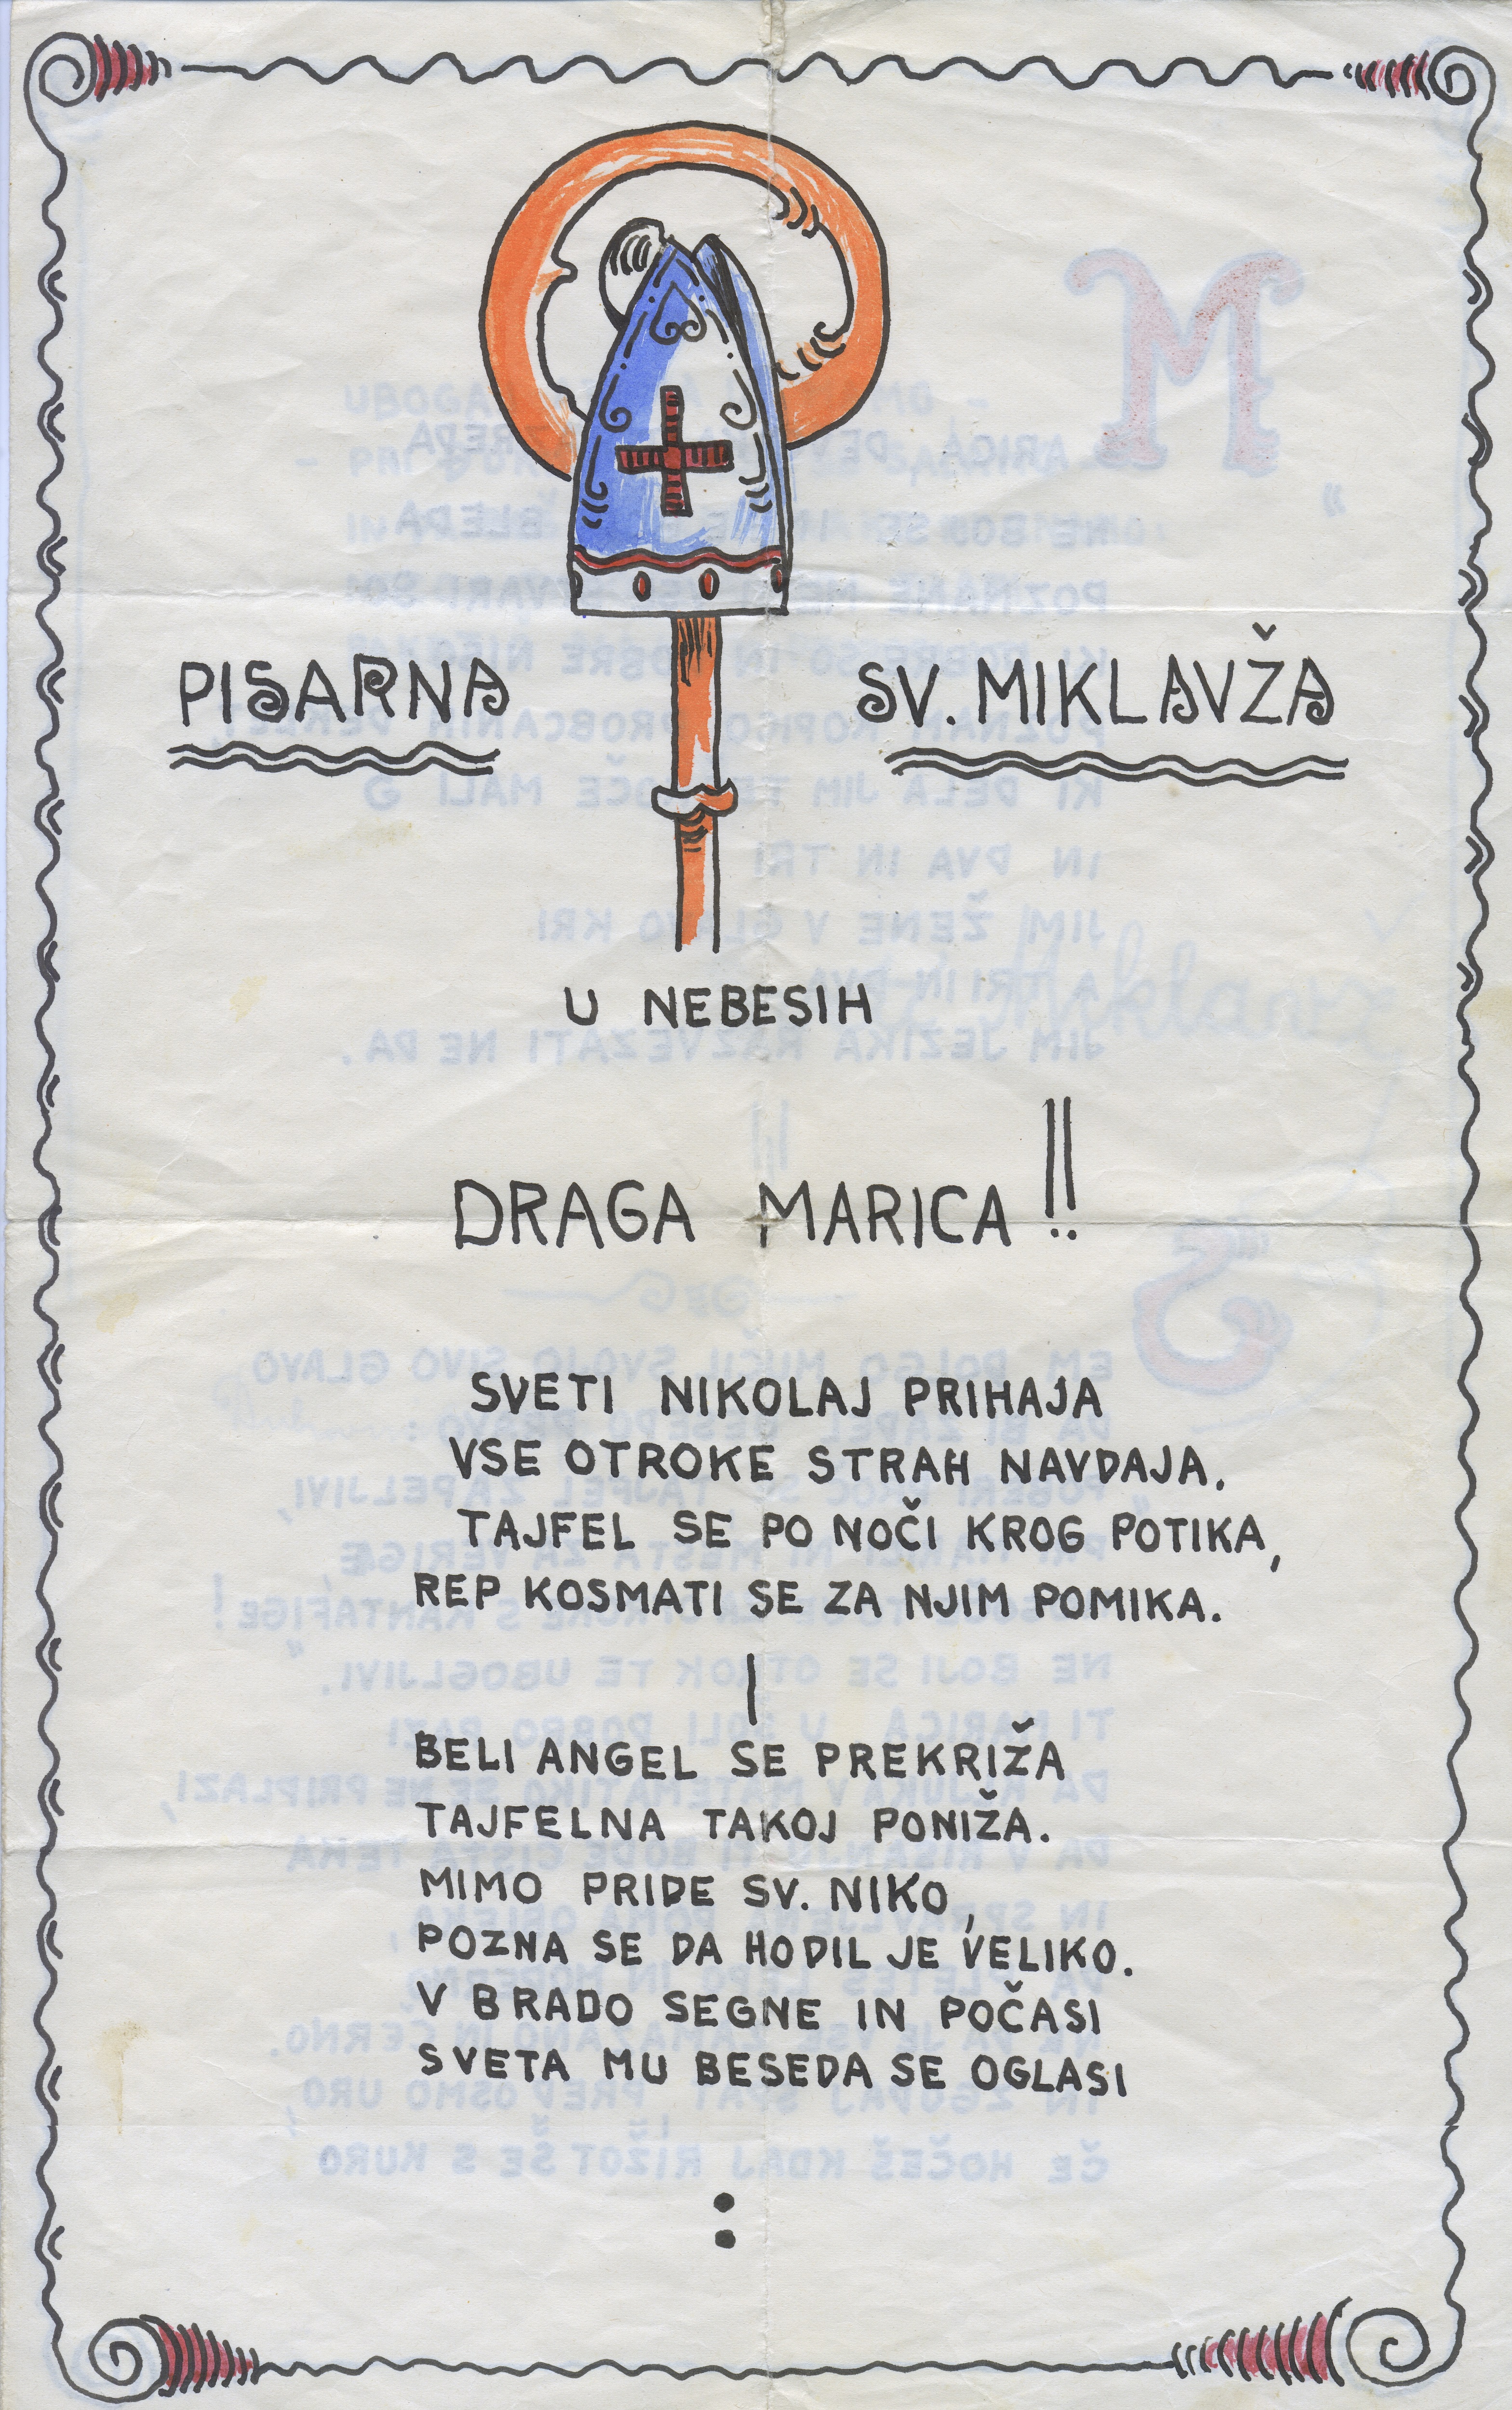 PISARNA SV. MIKLAVŽA
U NEBESIH
DRAGA MARICA!!
SVETI NIKOLAJ PRIHAJA
VSE OTROKE STRAH NAVDAJA.
TAJFEL SE PO NOČI KROG POTIKA,
REP KOSMATI SE ZA NJIM POMIKA.
BELI ANGEL SE PREKRIŽA
TAJFELNA TAKOJ PONIŽA.
MIMO PRIDE SV. NIKO,
POZNA SE DA HODIL JE VELIKO.
V BRADO SEGNE IN POČASI
SVETA MU BESEDA SE OGLASI
: